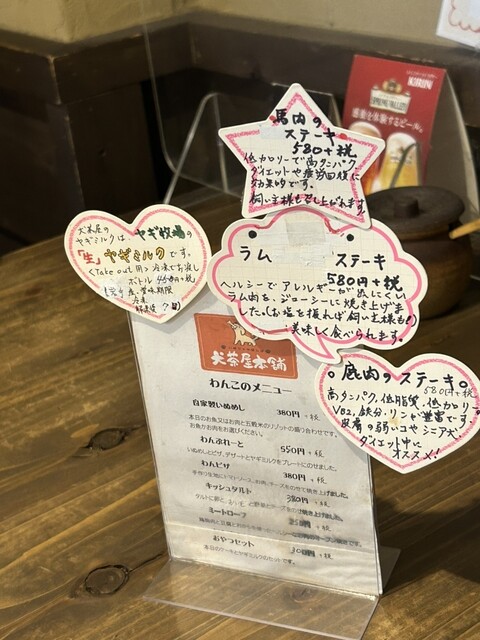 馬肉の
ステーキ
580+税
低カロリーで高タンパク
ダイエットや疲労回復に
効果的です。
飼い主様も召し上がれます。
犬茶屋の
ヤギミルクは、ヤギ牧場の
「生」ヤギミルクです。
〈Take out用〉冷凍でお渡し
ボトル 450円+税
賞味期限
冷凍
解凍後
ラム ステーキ
580円+税
ヘルシーでアレルギーが出にくい
ラム肉を、ジューシーに焼き上げま
した。(お塩を振れば飼い主様も!)
美味しく食べられます。
鹿肉のステーキ
580円+税
高タンパク、低脂質、低カロリー
VB2、鉄分、リンが豊富です。
皮膚の弱いコやシニア犬、
ダイエット中に
オススメ!
犬茶屋本舗
わんこのメニュー
自家製いぬめし 380円+税
本日のお魚又はお肉と五穀米のリゾットの盛り合わせです。
お魚かお肉をお選びください。
わんぷれーと 550円+税
いぬめしとピザ、デザートとヤギミルクをプレートにのせました。
わんピザ 380円+税
手作り生地にトマトソース、お肉、チーズをのせて焼き上げました。
キッシュタルト 380円+税
ミートローフ 250円+税
おやつセット 300円+税
本日のケーキとヤギミルクのセットです。
SPRING VALLEY
KIRIN
感動を体験するビール。